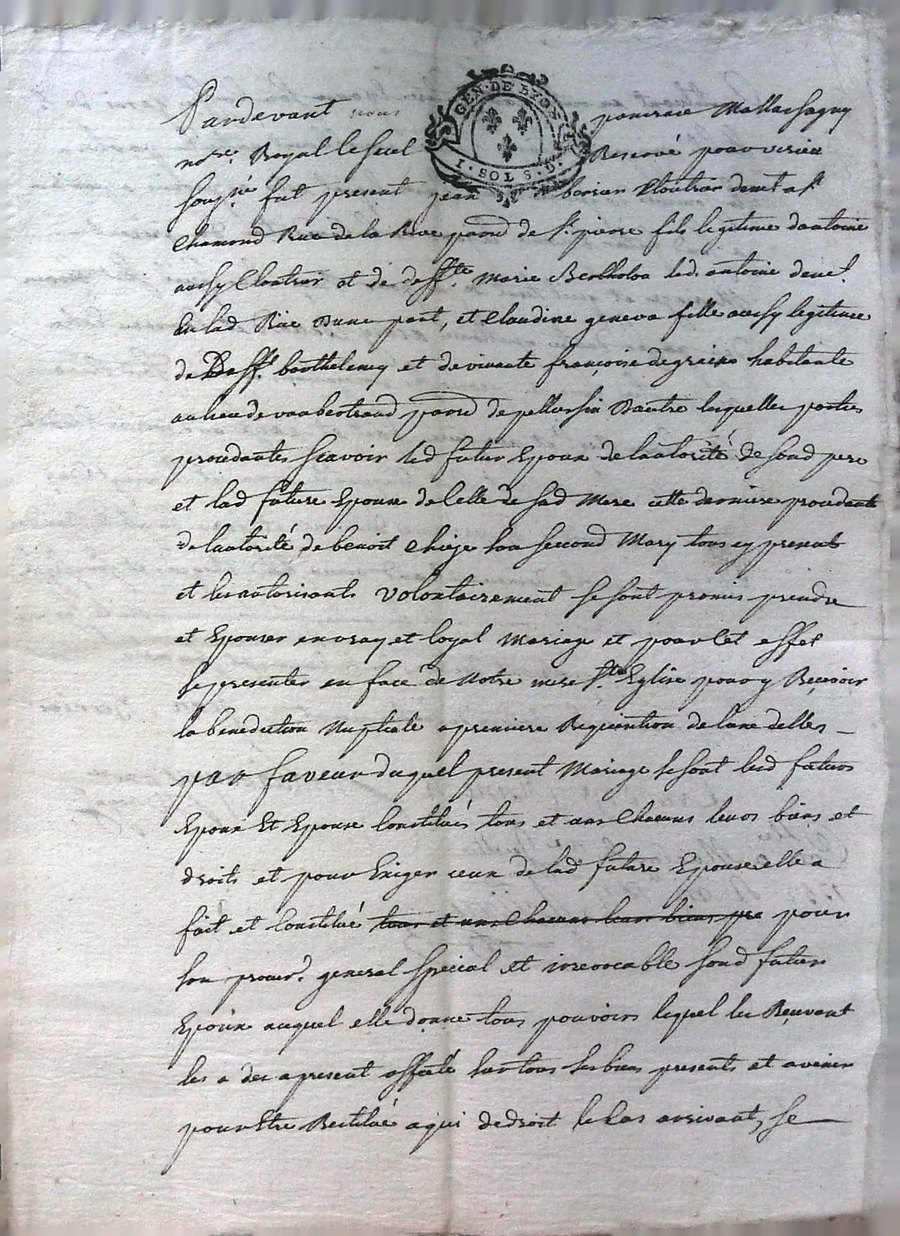 GEN · DE LYON
I · SOL 8 · D
Pardevant nous pancrace Mallassagny
not.re Royal le seul Reservé pour virieu
soussigné fut present jean Cloutrier demt a st
Chamond Rue de la Rive paroisse de st. pierre fils legitime dantoine
aussy Cloutrier et de deffte. Marie Bertholon led. antoine demt
en lad Rue Dune part, et Claudine geneva fille aussy legitime
de Deff. barthelemy et de vivante françoise degraix habitante
au lieu de vaubertrand parre de pellussin Dautre lesquelles parties
procedantes scavoir led futur Epoux de lautorité de sond pere
et lad future Epouse de Celle de sad Mere cette derniere procedante
de lautorité de benoit Chièze son second Mary tous cy presents
et les autorisants volontairement se sont promis prendre
et Epouser en vray et loyal Mariage et pour Cet effet
se presenter en face de Notre mere Ste Eglise pour y Recevoir
la benediction Nuptiale a premiere Requisition de lune delles
par faveur duquel present Mariage se sont lesd futurs
Epoux Et Epouse Constitués tous et uns Chacuns leurs biens et
droits et pour Exiger ceux de lad future Epouse elle a
fait et Constitué tous et uns Chacuns leurs biens pre pour
son procur. general special et irrevocable sond futur
Epoux auquel elle donne tous pouvoirs lequel les Recevant
les a des apresent affecté sur tous ses biens presents et avenir
pour Etre Restitué a qui de droit le Cas arrivant, se